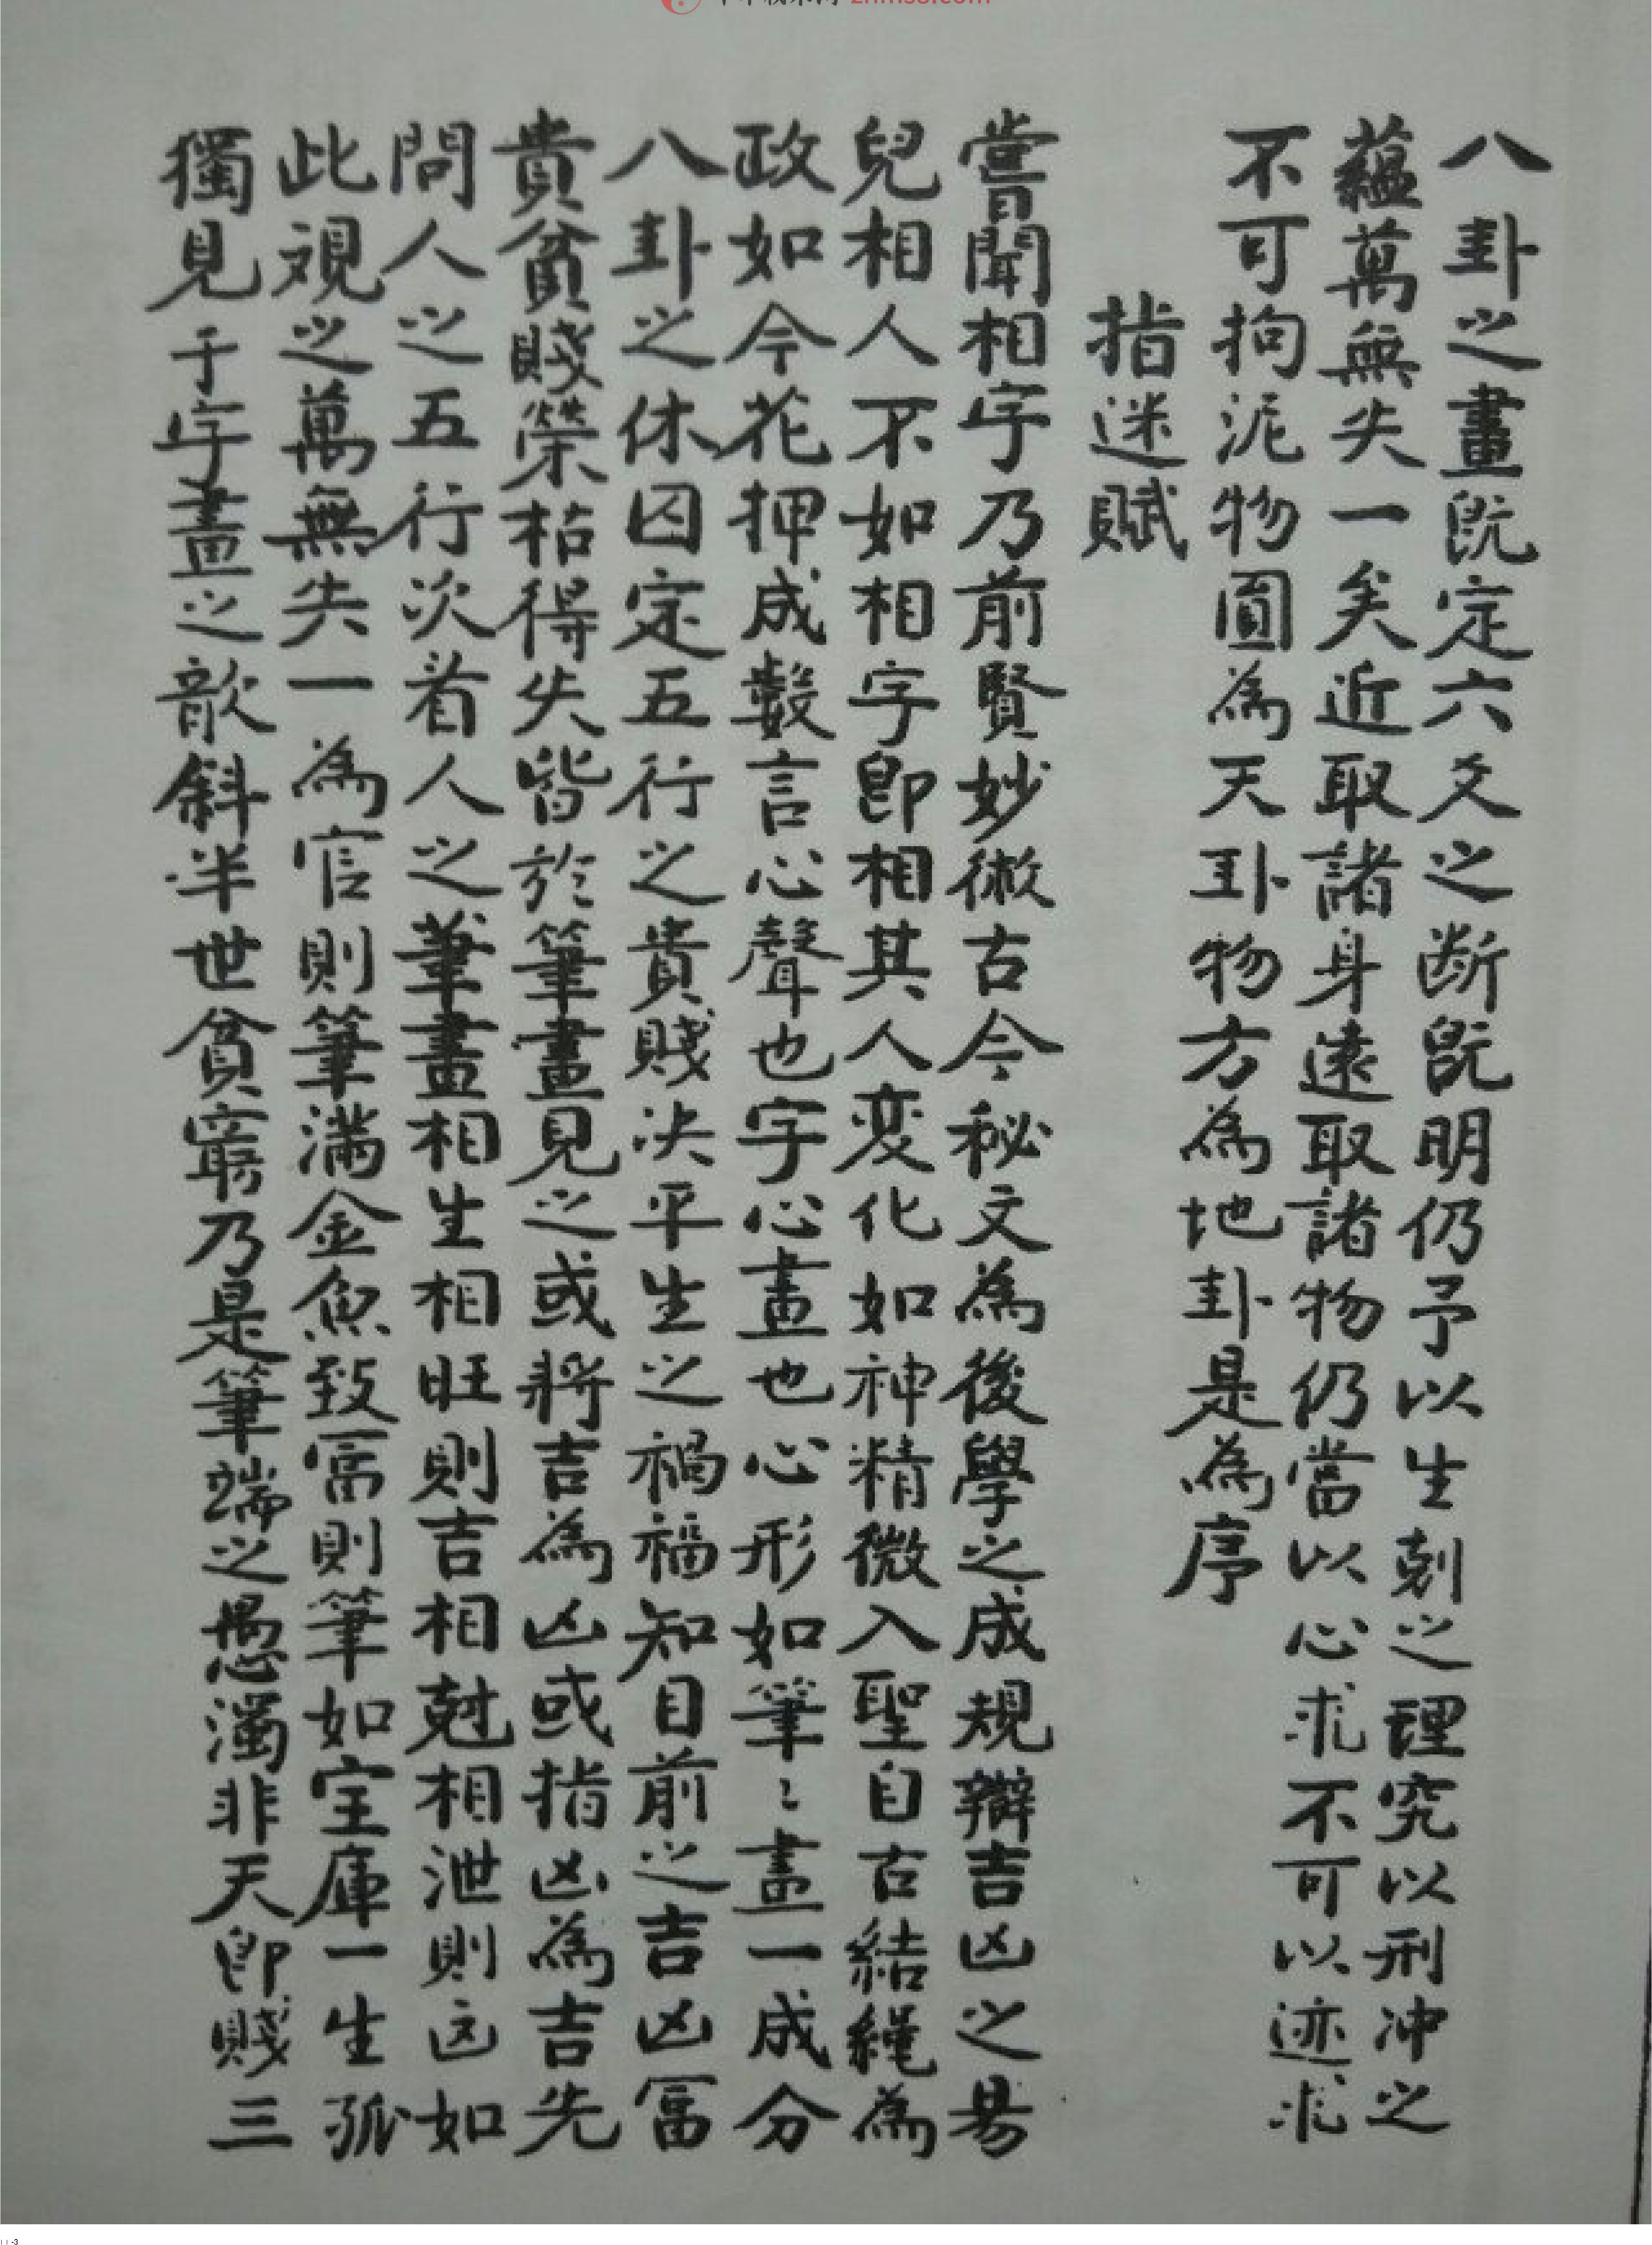 八卦之畫旣定六爻之断旣明仍予以生剋之理究以刑冲之
蘊萬無失一矣近取諸身遠取諸物仍當以心求不可以迹求
不可拘泥物圓為天卦物方為地卦是為序
指迷賦
嘗聞相字乃前賢妙術古今秘文為後學之成規辯吉凶之易
兒相人不如相字卽相其人変化如神精微入聖自古結繩為
政如今花押成數言心聲也字心畫也心形如筆〻畫一成分
八卦之休囚定五行之貴賤决平生之禍福知目前之吉凶冨
貴貧賤榮枯得失皆於筆畫見之或將吉為凶或指凶為吉先
問人之五行次看人之筆畫相生相旺則吉相尅相泄則凶如
此觀之萬無失一為官則筆滿金魚致冨則筆如宝庫一生孤
獨見于字畫之歆斜半世貧窮乃是筆端之愚濁非夭卽賤三
11-3